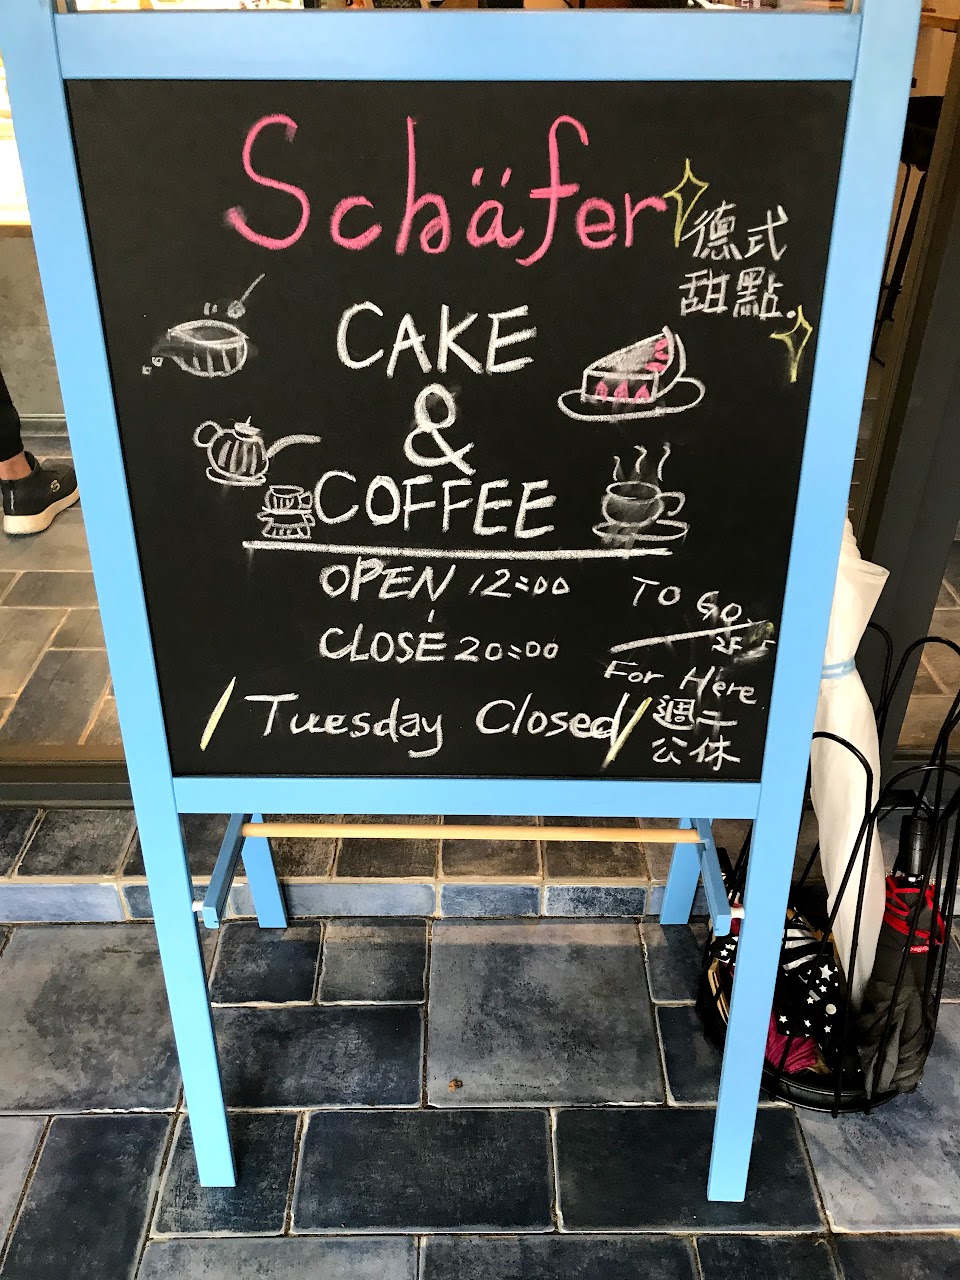 Schäfer
德式
甜點.
CAKE
&
COFFEE
OPEN 12:00
CLOSE 20:00
TO GO
2F
For Here
/ Tuesday Closed /
週二
公休